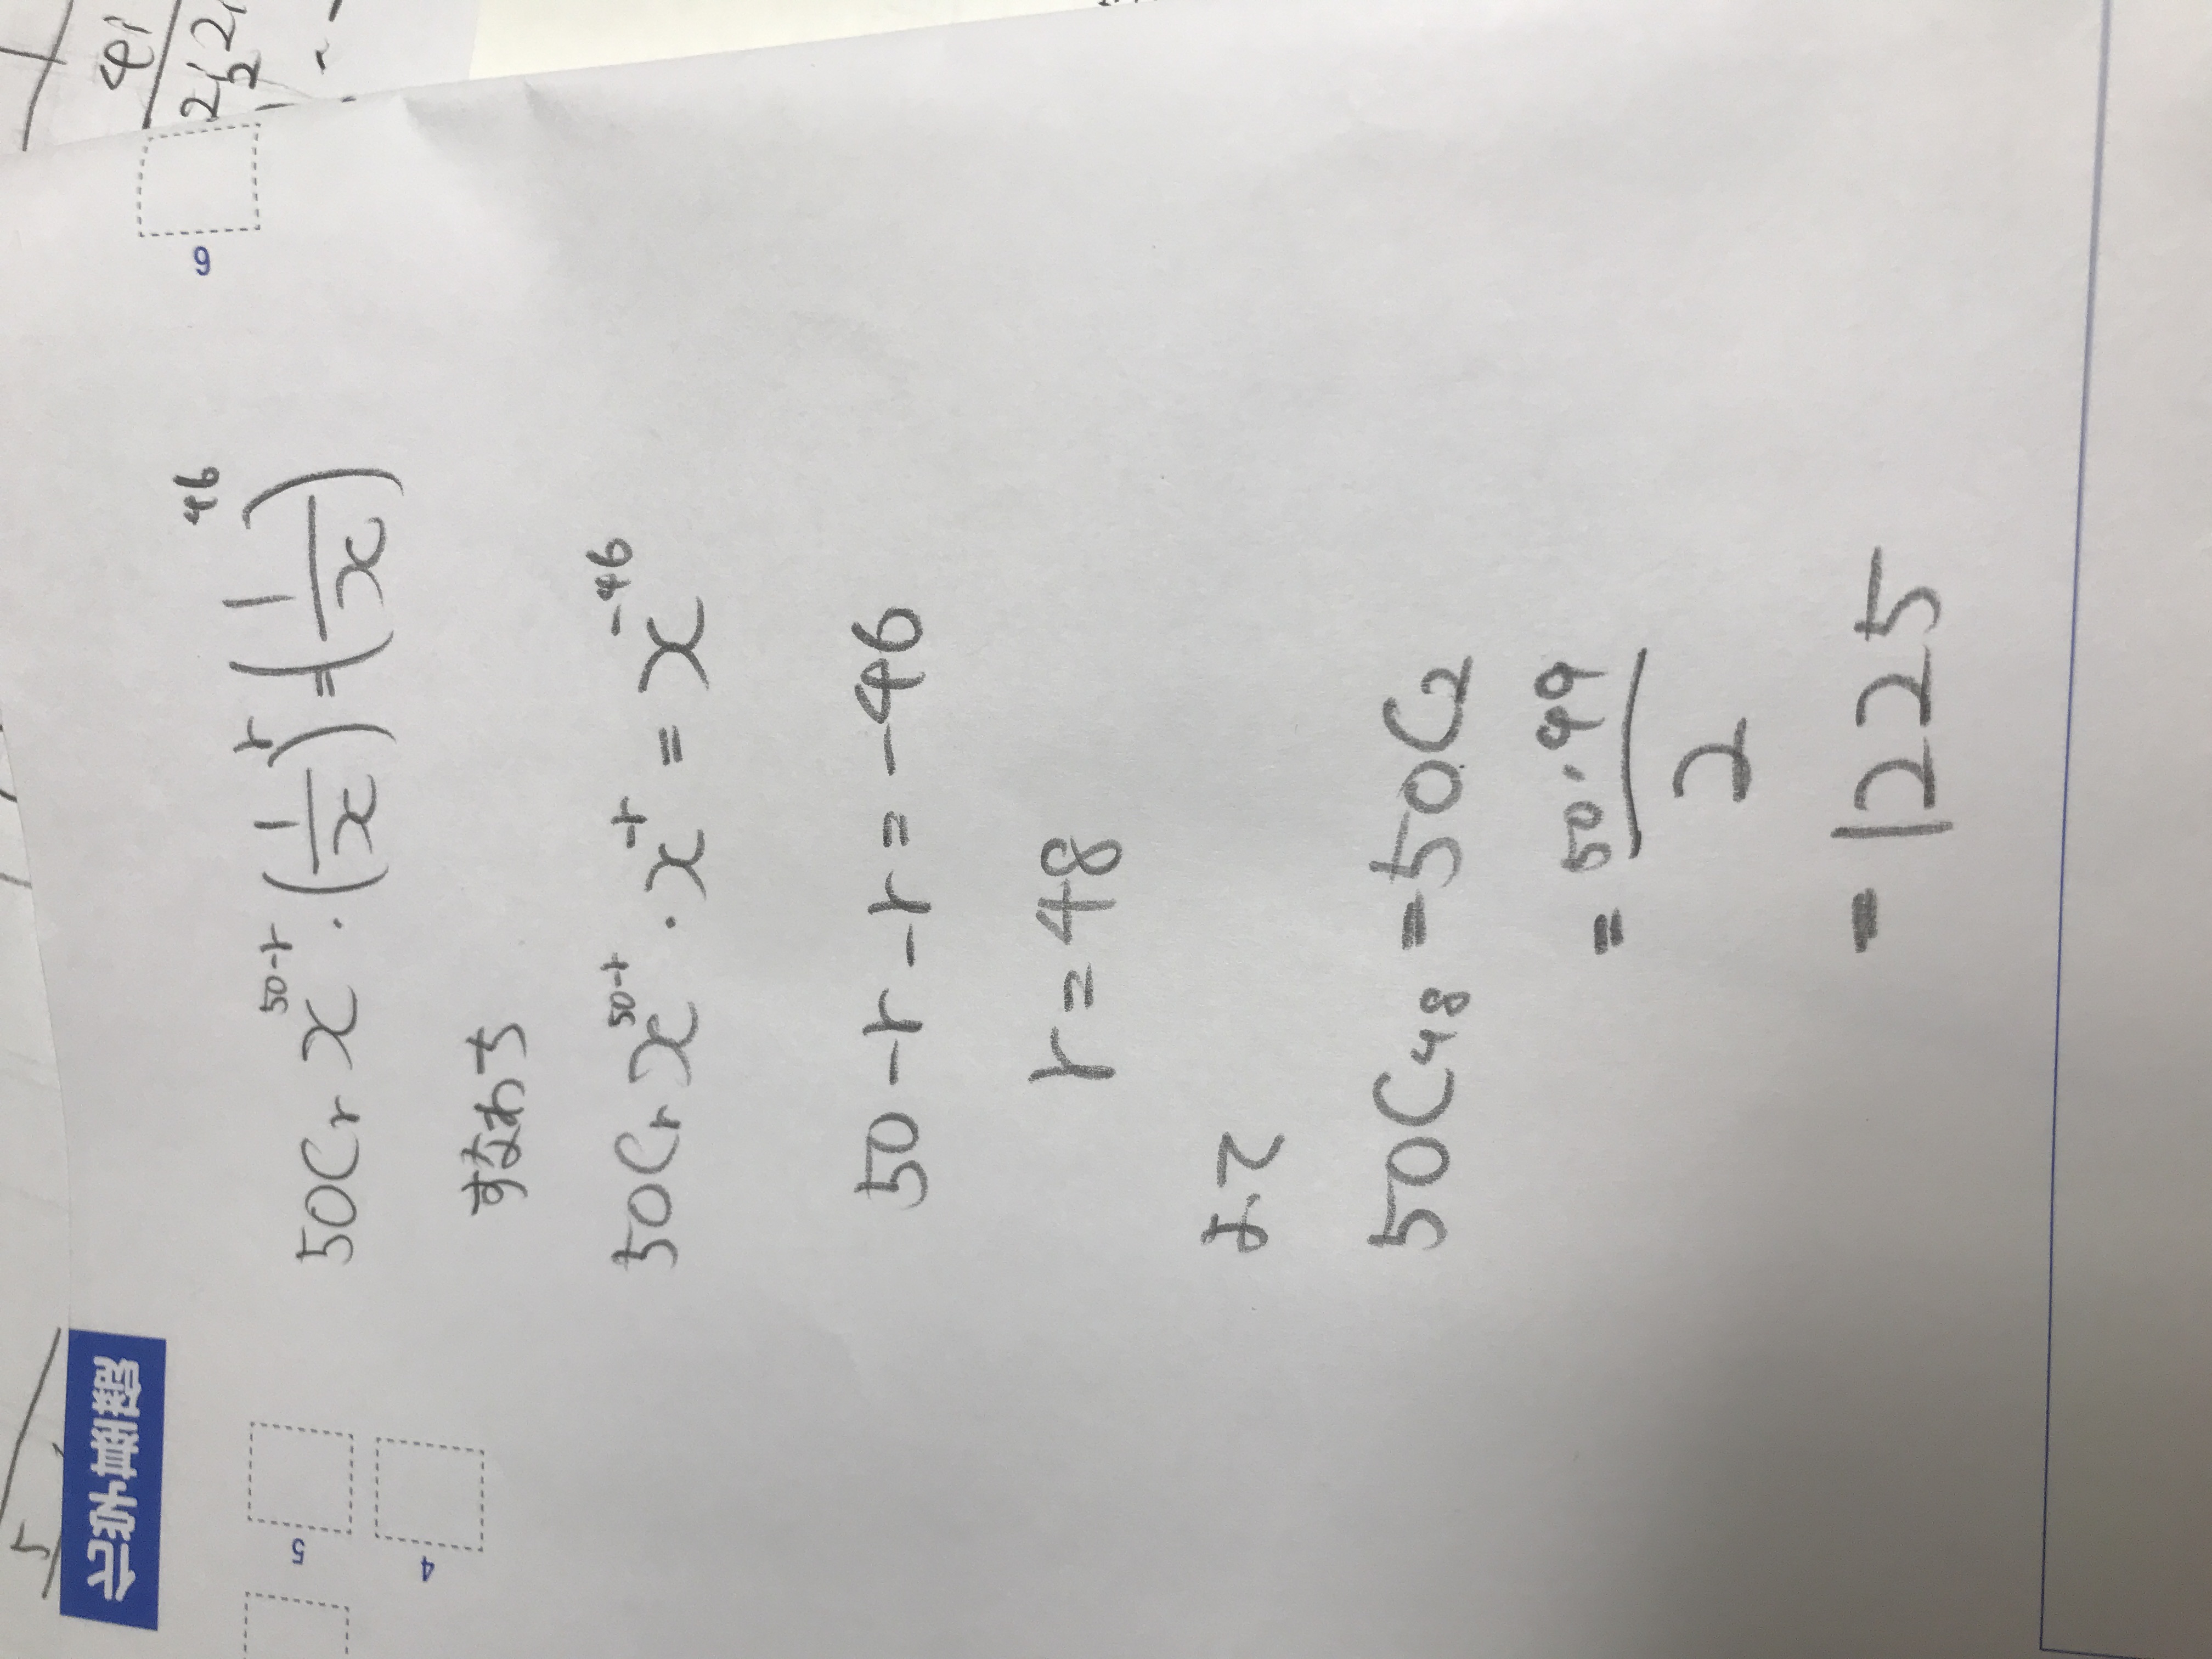 50Cr x^50-r · (1/x)^r = (1/x)^46
すなわち
50Cr x^50-r · x^-r = x^-46
50-r-r=-46
r=48
よって
50C48 = 50C2
= 50·49/2
= 1225
6
5
4